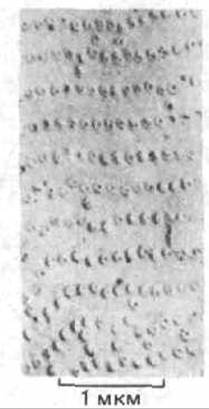 1 мкм